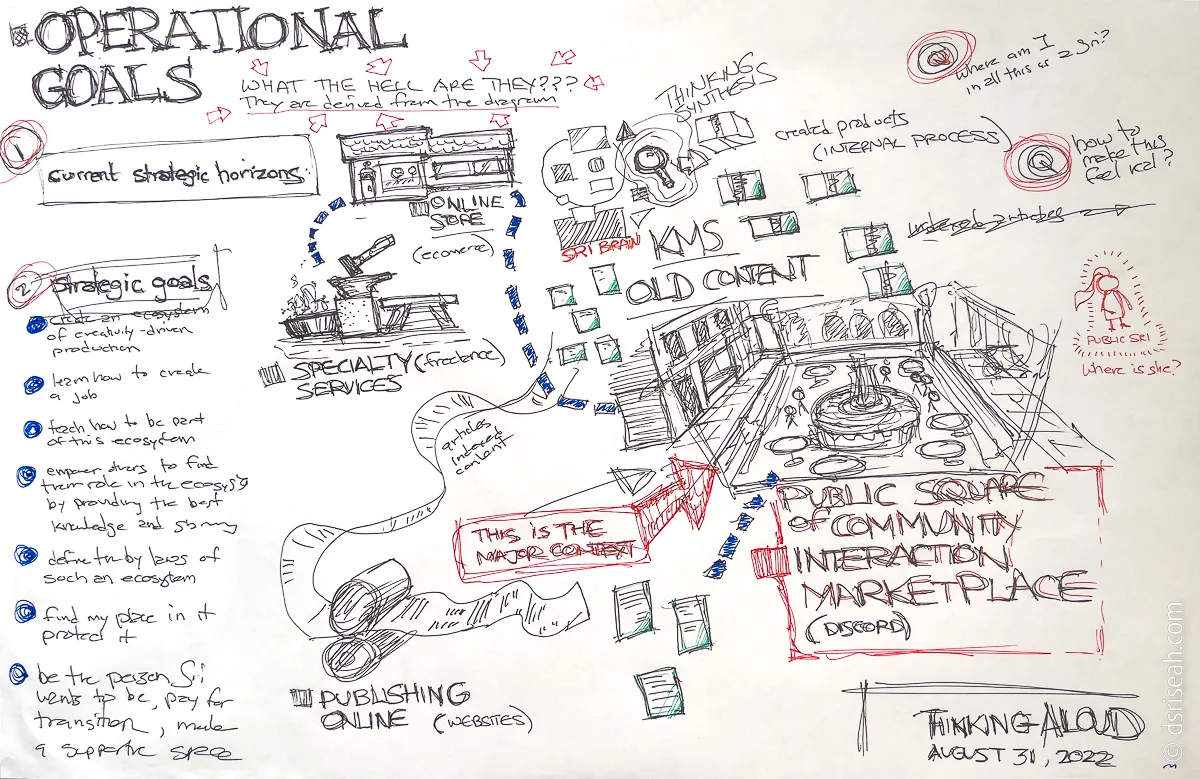 OPERATIONAL
GOALS
WHAT THE HELL ARE THEY???
They are derived from the diagram
1
current strategic horizons
2
strategic goals
create an ecosystem
of creativity-driven
production
learn how to create
a job
teach how to be part
of this ecosystem
empower others to find
their role in the
by providing the best
knowledge and
define the by laws of
such an ecosystem
find my place in it
protect it
be the person Sri
wants to be, pay for
transition, make
a supportive space
ONLINE
STORE
(ecommerce)
SPECIALTY (freelance)
SERVICES
articles
interest
content
PUBLISHING
ONLINE (WEBSITES)
THINKING
SYNTHESIS
SRI BRAIN
KMS
OLD CONTENT
created products
(INTERNAL PROCESS)
Where am I
in all this as
Q
how to
make this
feel real?
PUBLIC SRI
Where is she?
THIS IS THE
MAJOR CONTEXT
PUBLIC SQUARE
of COMMUNITY
INTERACTION
MARKETPLACE
(DISCORD)
THINKING ALOUD
AUGUST 31, 2022
© dsriseah.com